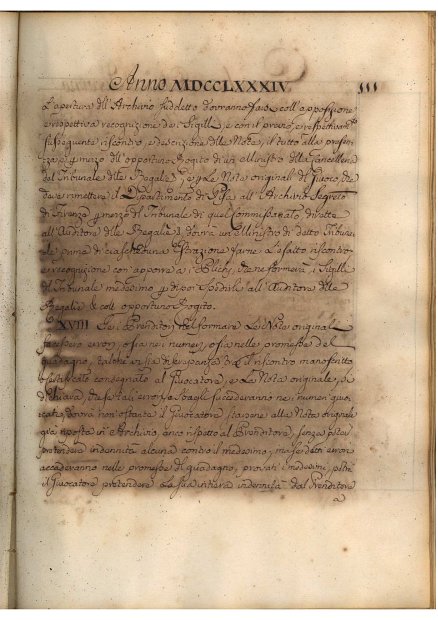 Anno MDCCLXXXIV 111
L'apertura dell'Archivio suddetto dovranno farsi coll'apposizione,
e respettiva recognizione dei Sigilli, e con il previo, e respettivam.te
susseguente riscontro, e descrizione delle Note, il tutto alla presen-
za, e mezzo dell'opportuno Rogito di un Ministro della Cancelleria
del Tribunale delle Regalie, e le Note originali di fuori, che
deve rimettere il Dipartimento di Pisa all'Archivio Segreto
di Firenze mezzo del Tribunale di quel Commissariato dirette
all'Auditore delle Regalie, dovrà un Ministro di detto Tribuna-
le prima di ciascheduna Estrazione farne l'esatto riscontro
e recognizione con apporre a i Plichi, che ne formerà, i Sigilli
del Tribunale medesimo di poi spedirli all'Auditore delle
Regalie coll'opportuno Rogito.
XVIII Se i Prenditori nel formare le Note originali
facessero errori, o sia nei numeri, o sia nelle promesse del
guadagno, talchè vi sia discrepanza tra il riscontro manoscritto
o consegnato al Giuocatore, e la Nota originale, si
dichiara, che se tali errori, o sbagli succederanno nei numeri giuo-
cati, dovrà non ostante il Giuocatore stare alla Nota originale
già riposta in Archivio, anco rispetto al Prenditore, senza poter
pretendere indennità alcuna contro il medesimo, ma se detti errori
accaderanno nelle promesse di guadagno, provati i medesimi, potrà
il Giuocatore pretendere la sua intiera indennità dal Prenditore
a